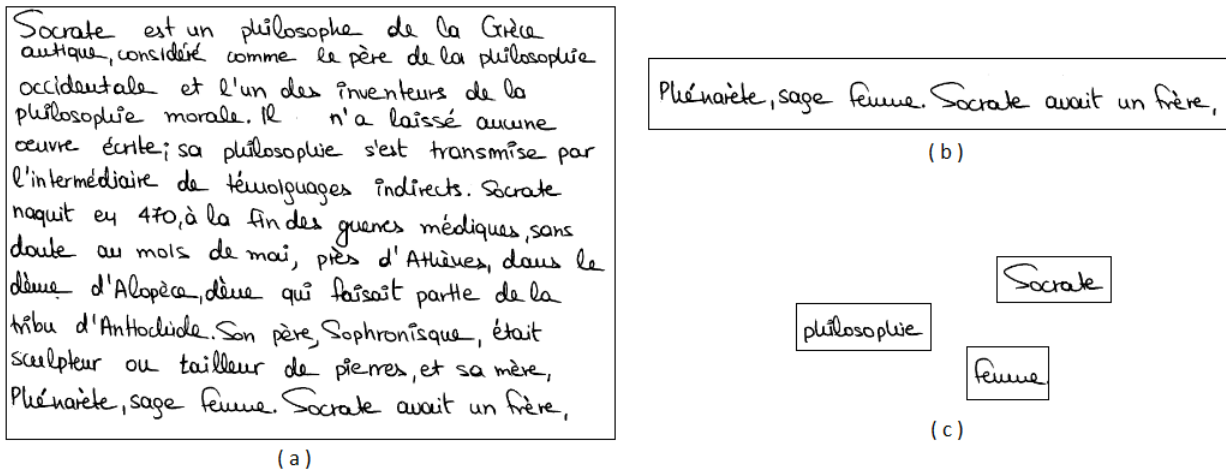 Socrate est un philosophe de la Grèce
antique, considéré comme le père de la philosophie
occidentale et l'un des inventeurs de la
philosophie morale. Il n'a laissé aucune
œuvre écrite; sa philosophie s'est transmise par
l'intermédiaire de témoignages indirects. Socrate
naquit en 470, à la fin des guerres médiques, sans
doute au mois de mai, près d'Athènes, dans le
dème d'Alopèce, dème qui faisait partie de la
tribu d'Antiochide. Son père, Sophronisque, était
sculpteur ou tailleur de pierres, et sa mère,
Phénarète, sage femme. Socrate avait un frère,
( a )
Phénarète, sage femme. Socrate avait un frère,
( b )
Socrate
philosophie
femme
( c )